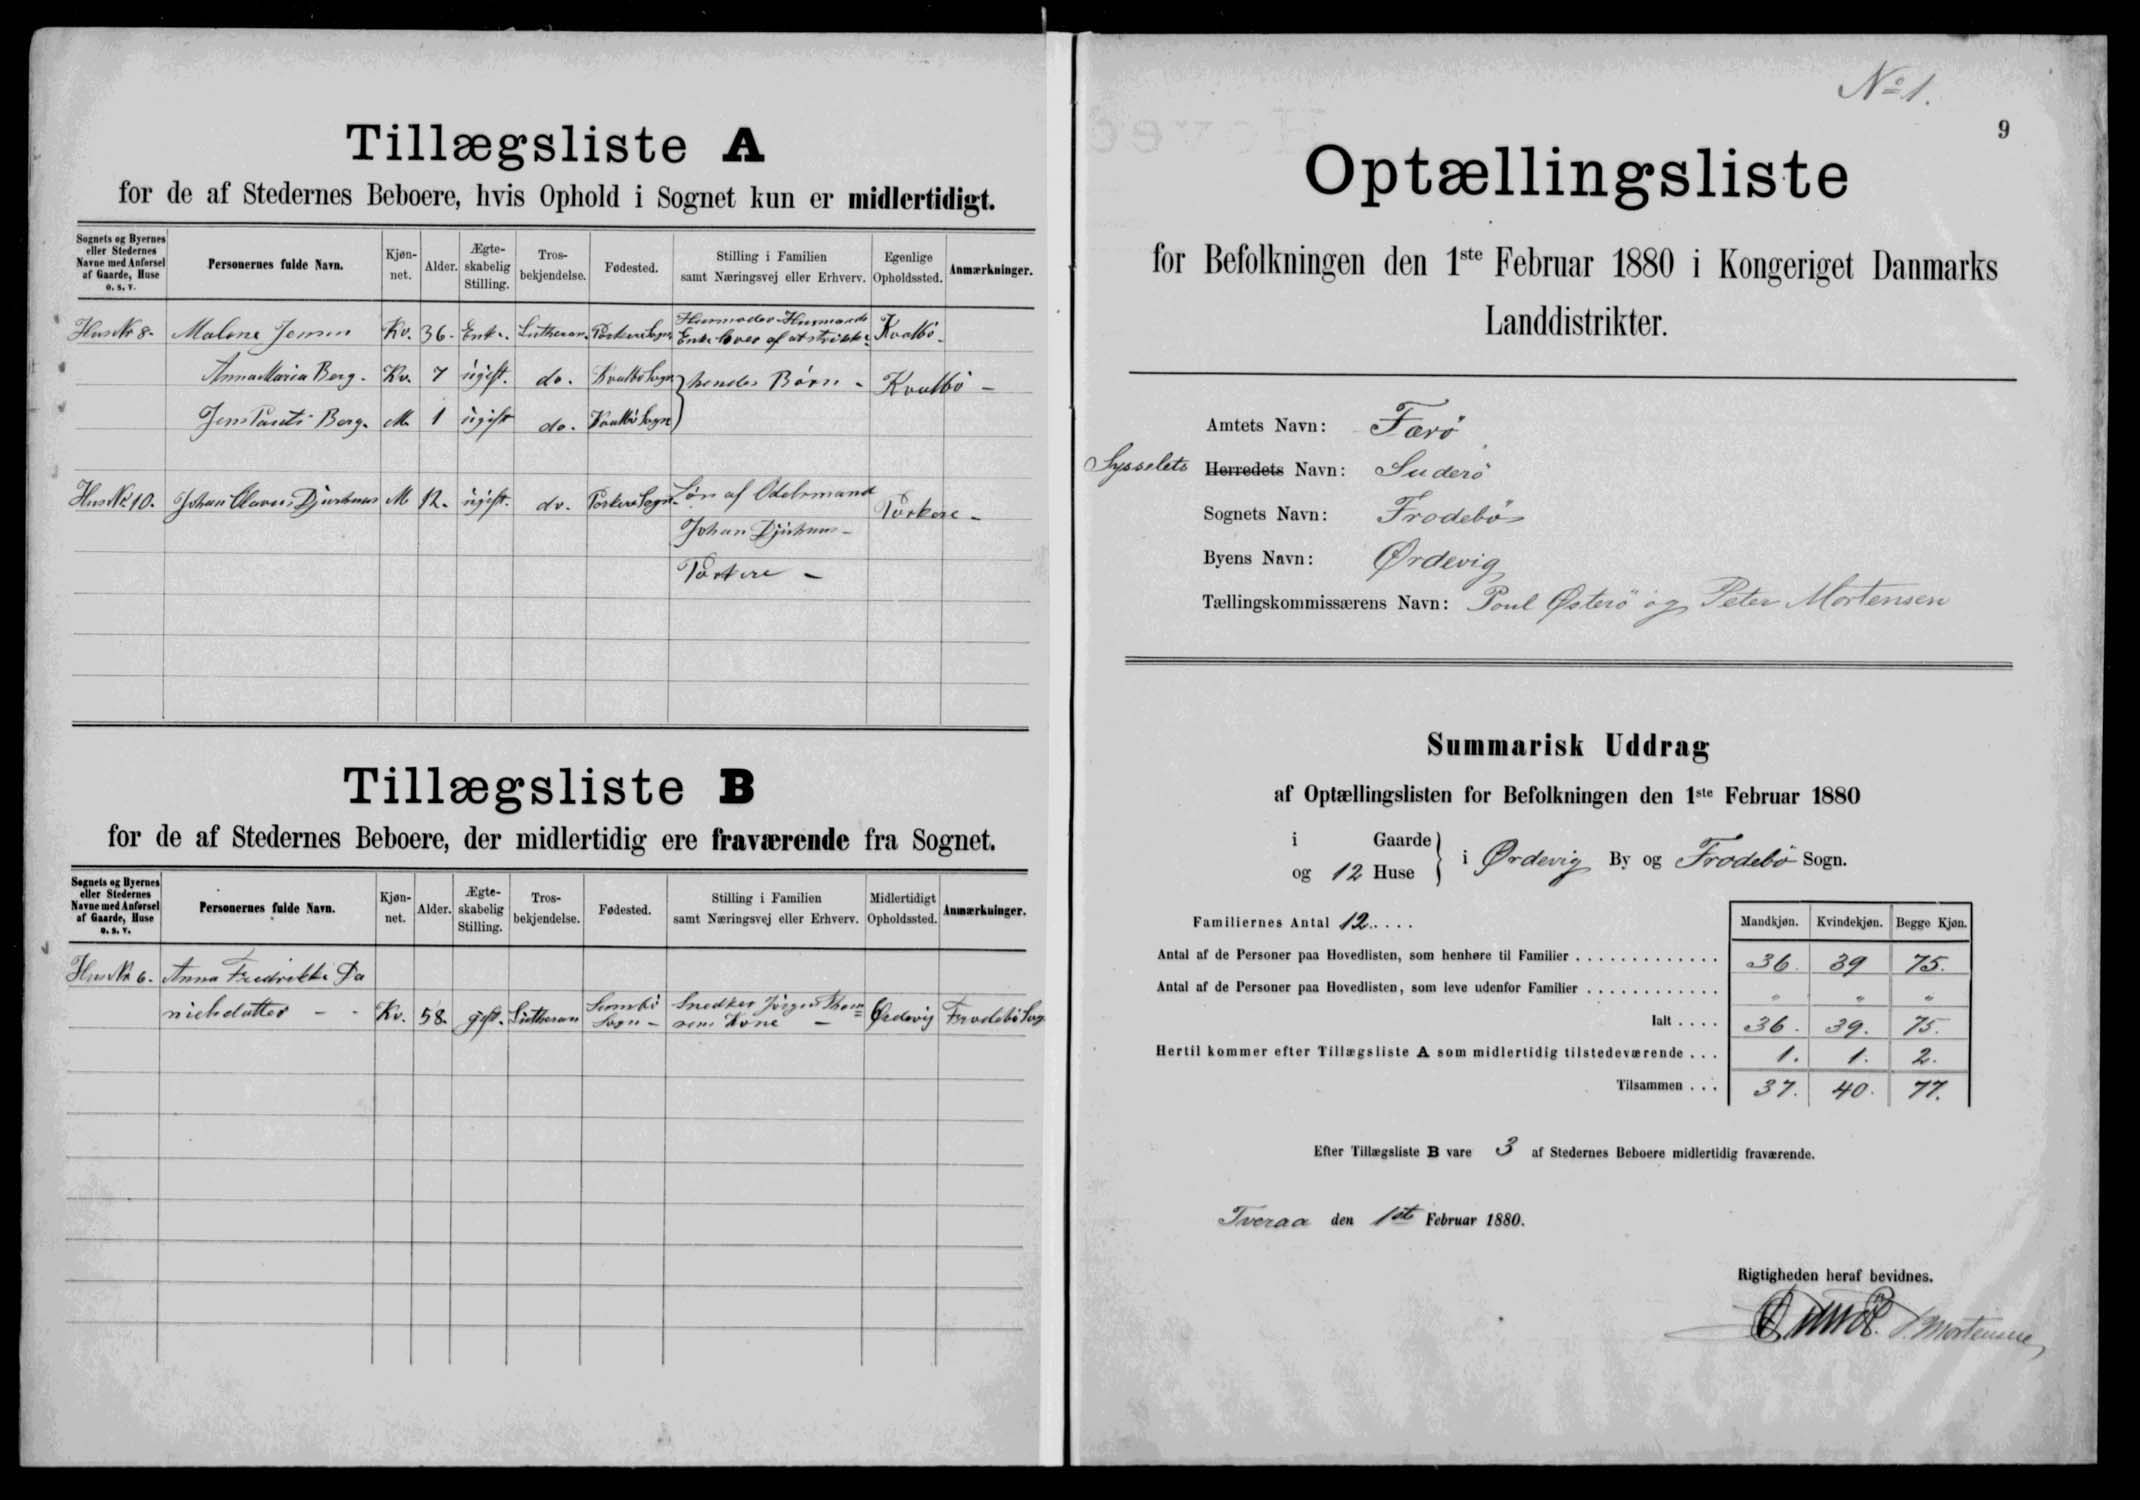 Tillægsliste A
for de af Stedernes Beboere, hvis Ophold i Sognet kun er midlertidigt.
Sognets og Byernes eller Stedernes Navne med Anførsel af Gaarde, Huse o. s. v. Personernes fulde Navn. Kjøn-net. Alder. Ægte-skabelig Stilling. Tros-bekjendelse. Fødested. Stilling i Familien samt Næringsvej eller Erhverv. Egenlige Opholdssted. Anmærkninger.
Hus No 8. Malene Jensen Kv. 36. Enke. Lutheran. Porkere Sogn Husmoder Husmands Enke lever af at strikke Kvalbö.
Anna Maria Berg. Kv. 7 ugift. do. Kvalbö Sogn hendes Børn - Kvalbö -
Jens Berg. M. 1 ugift do. Kvalbö Sogn
Hus No 10. Johan Olavus Djurhuus M 12. ugift. do. Porkere Sogn. Søn af Odelsmand Porkere -
Johan Djurhuus -
Porkere -
Tillægsliste B
for de af Stedernes Beboere, der midlertidig ere fraværende fra Sognet.
Sognets og Byernes eller Stedernes Navne med Anførsel af Gaarde, Huse o. s. v. Personernes fulde Navn. Kjøn-net. Alder. Ægte-skabelig Stilling. Tros-bekjendelse. Fødested. Stilling i Familien samt Næringsvej eller Erhverv. Midlertidigt Opholdssted. Anmærkninger.
Hus No 6. Anna Fredrikke Da
nielsdatter - - Kv. 58. gift. Lutheran Sumbö Sogn - Snedker Jörgen Thom=sens Kone - Ördevig Frodebö Sogn
No 1.
9
Optællingsliste
for Befolkningen den 1ste Februar 1880 i Kongeriget Danmarks
Landdistrikter.
Amtets Navn: Færö
Sysselets Herredets Navn: Suderö
Sognets Navn: Frodebö
Byens Navn: Ørdevig
Tællingskommissærens Navn: Poul Østerö og Peter Mortensen
Summarisk Uddrag
af Optællingslisten for Befolkningen den 1ste Februar 1880
i Gaarde
og 12 Huse } i Ørdevig By og Frodebö Sogn.
Mandkjøn. Kvindekjøn. Begge Kjøn.
Familiernes Antal 12. . . . .
Antal af de Personer paa Hovedlisten, som henhøre til Familier . . . . . . . . . . . . . 36. 39 75.
Antal af de Personer paa Hovedlisten, som leve udenfor Familier . . . . . . . . . . . . " " "
Ialt . . . . 36. 39. 75.
Hertil kommer efter Tillægsliste A som midlertidig tilstedeværende . . . 1. 1. 2.
Tilsammen . . . 37. 40. 77.
Efter Tillægsliste B vare 3 af Stedernes Beboere midlertidig fraværende.
Tveraa den 1ste Februar 1880.
Rigtigheden heraf bevidnes.
P. Mortensen